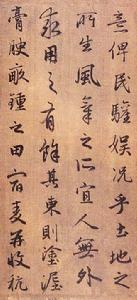 俾民驩娛況乎土地之
所生風氣之所宜人無外
求用之有餘其東則塗泥
膏腴畝鍾之田宿麥再收秔